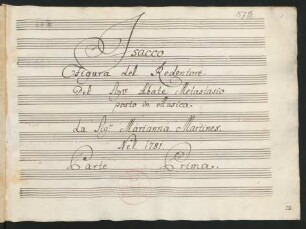 Isacco
Figura del Redentore
Del Sigr Abate Metastasio
posto in Musica.
Da Sigra Marianna Martines.
Nel 1781.
Parte Prima.